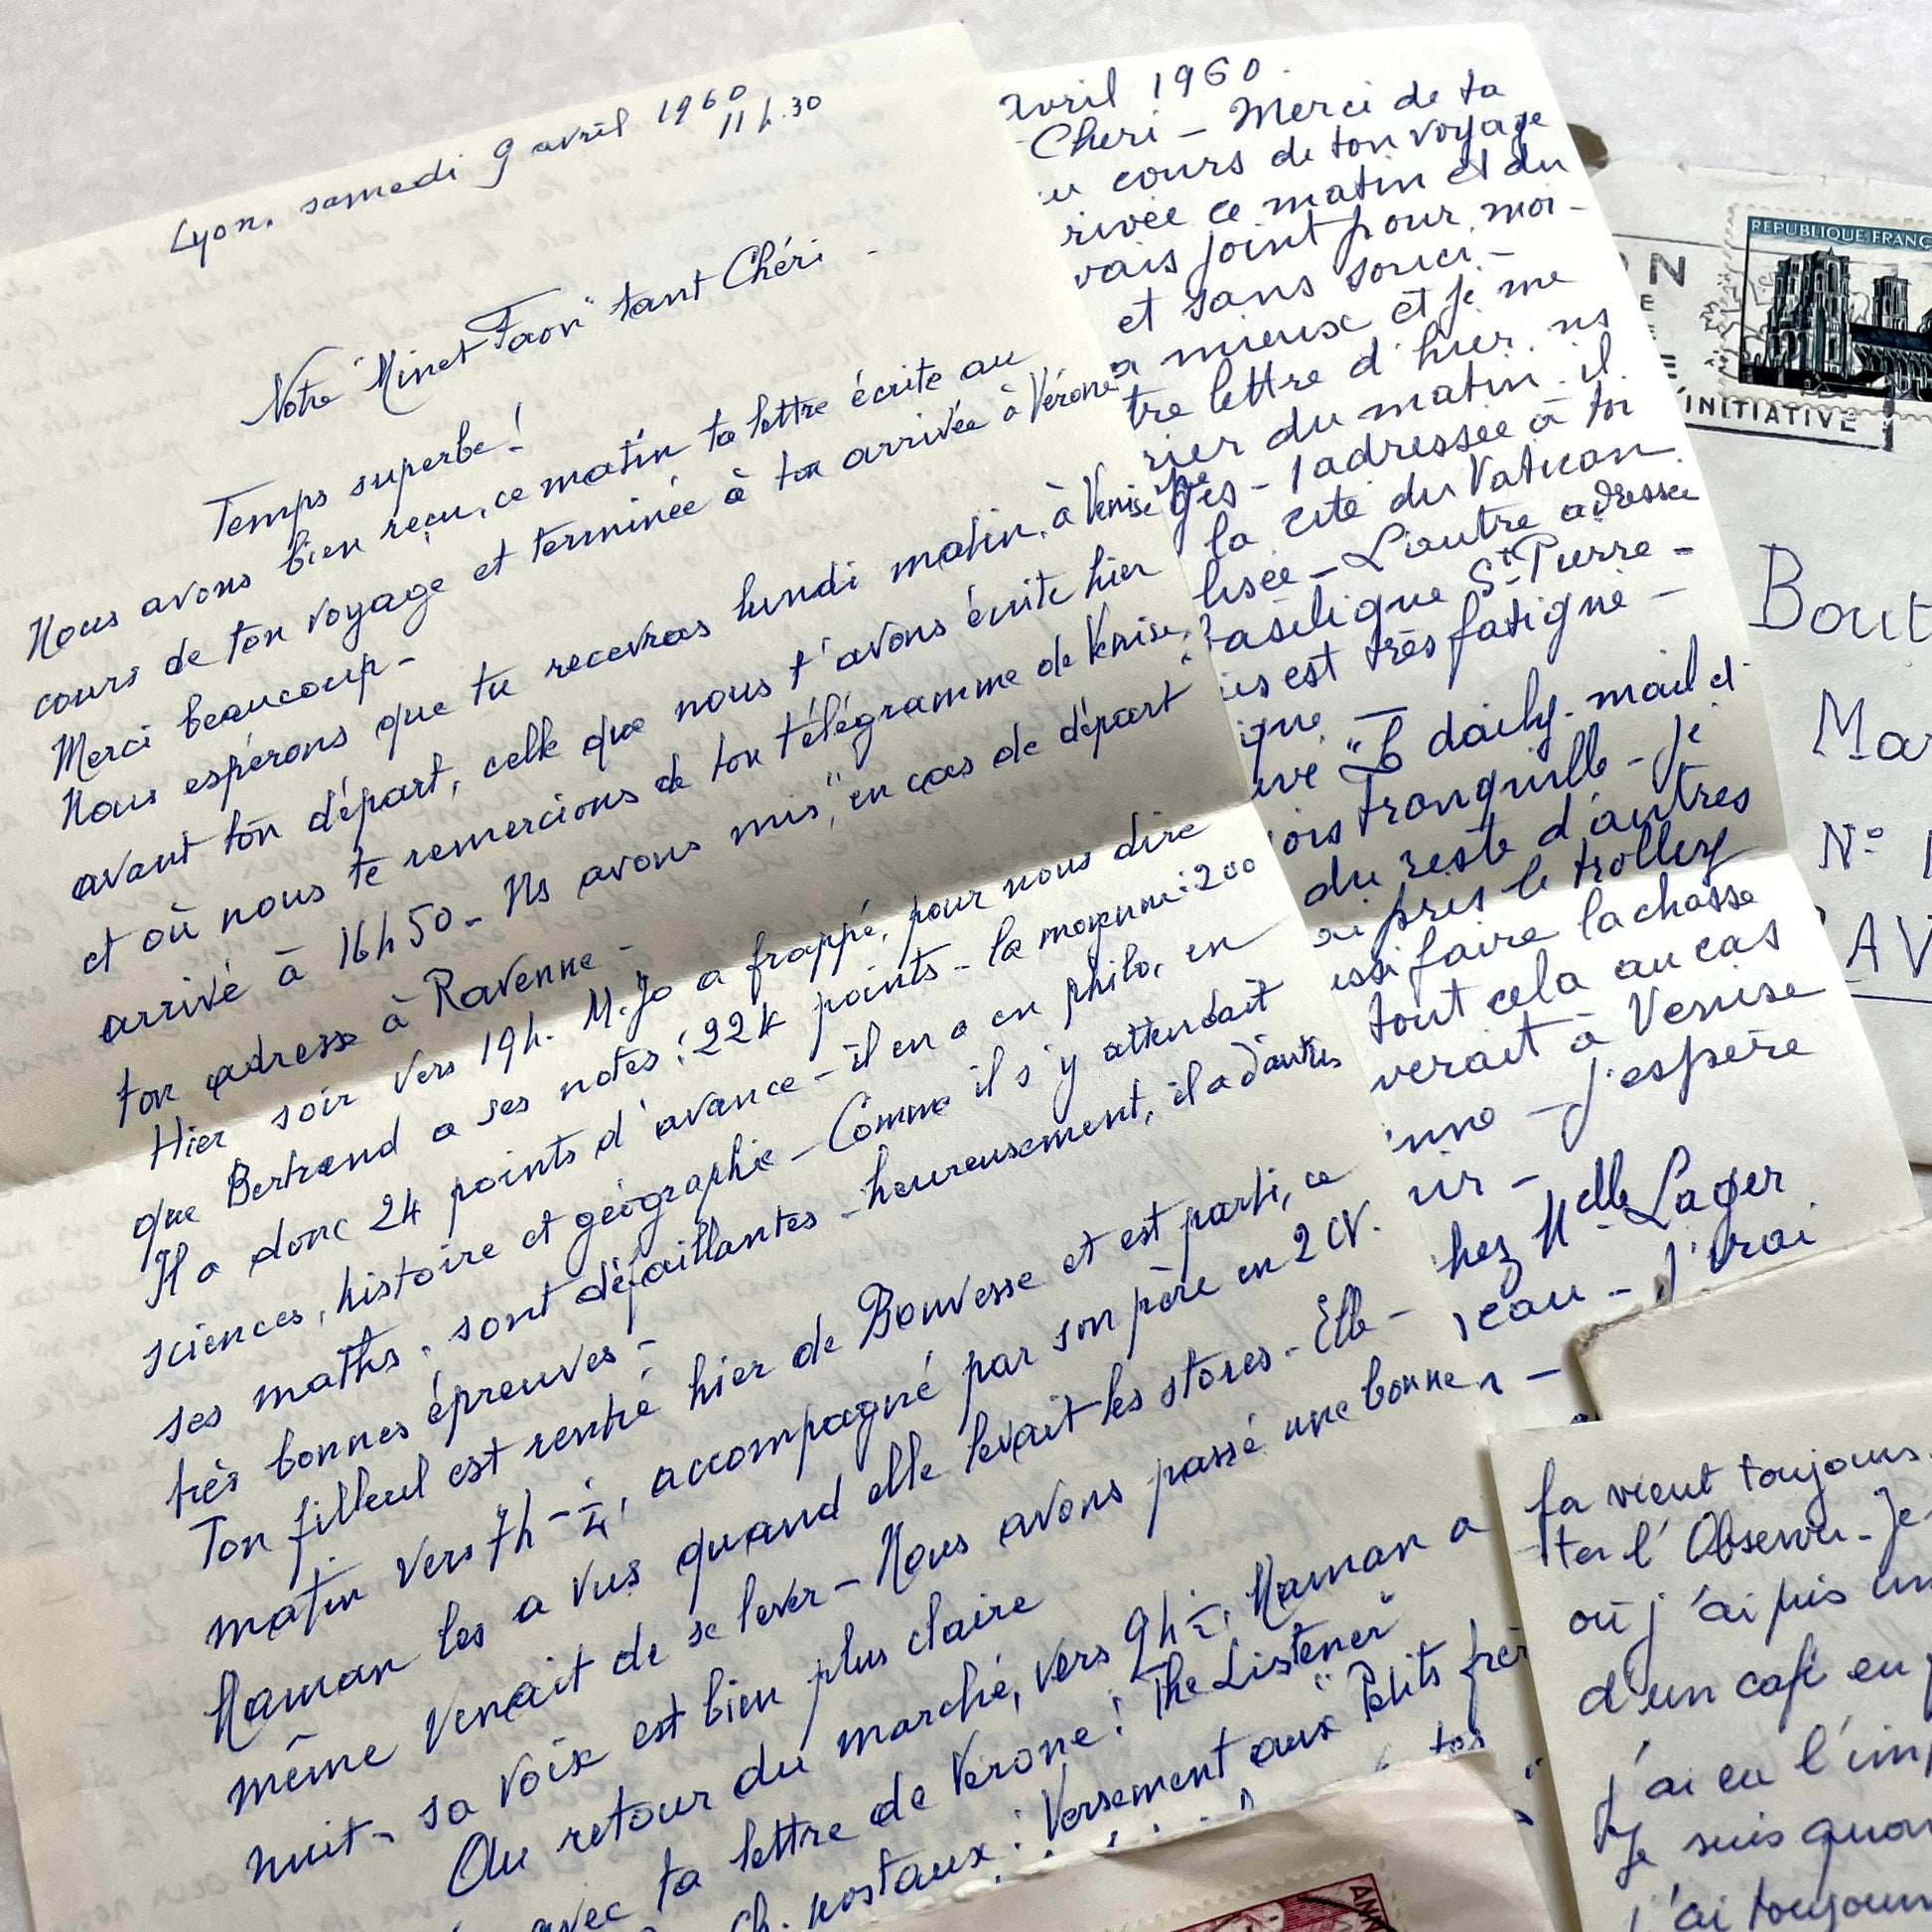 Lyon, samedi 9 avril 1960
11h.30
Notre "Minet Faon" tant Chéri -
Temps superbe!
Nous avons bien reçu, ce matin ta lettre écrite au
cours de ton voyage et terminée à ton arrivée à Vérone
Merci beaucoup -
Nous espérons que tu recevras lundi matin, à Venise
avant ton départ, celle que nous t'avons écrite hier
et où nous te remercions de ton télégramme de Venise,
arrivé à 16h50 - Ns avons mis, "en cas de départ"
ton adresse à Ravenne -
Hier soir vers 19h. M. Jo a frappé, pour nous dire
que Bertrand a ses notes: 224 points - la moyenne: 200
Il a donc 24 points d'avance - il en a en philo, en
sciences, histoire et géographie - Comme il s'y attendait
ses maths. sont défaillantes - heureusement, il a d'autres
très bonnes épreuves -
Ton filleul est rentré hier de Bouvesse et est parti, ce
matin vers 7h - accompagné par son père en 2 CV.
Maman les a vus quand elle levait les stores - Elle -
même venait de se lever - Nous avons passé une bonne
nuit - sa voix est bien plus claire
Au retour du marché, vers 9h ½, Maman a
avec ta lettre de Vérone: "The Listener"
ch. postaux: Versement aux "Petits frèr
tos
avril 1960.
Cheri - Merci de ta
u cours de ton voyage
rivée ce matin et du
vais joint pour moi -
et sans souci -
a mieux et je me
tre lettre d'hier, ns
rier du matin - il
ges - 1 adressée à toi
la cité du Vatican
lisée - L'autre adressée
asilique St Pierre -
is est très fatigué -
ique -
uvé "Le daily-mail et
ois tranquille - Je
du reste d'autres
ai pris le trolley
ussi faire la chasse
tout cela au cas
verait à Venise
nne - J'espère
ir -
hez Melle Lager
reau - J'irai
REPUBLIQUE FRANÇ
ON
E
E
E
L'INITIATIVE
Bout
Mar
N°
RAV
Ça vient toujours.
ter l'Observ. - Je
où j'ai pris un
d'un café en
j'ai eu l'imp
Je suis quan
j'ai toujour